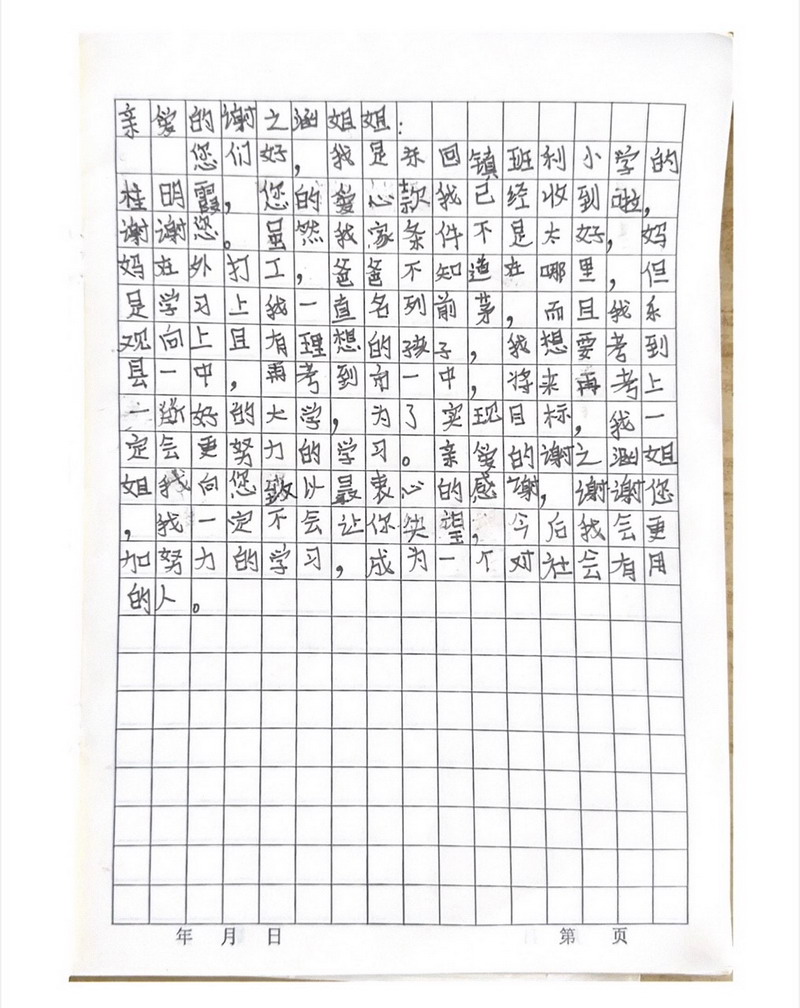 亲爱的谢之涵姐姐:
您们好,我是乐回镇班利小学的
桂明霞,您的爱心款我已经收到啦,
谢谢您。虽然我家条件不是太好,妈
妈在外打工,爸爸不知道在哪里,但
是学习上我一直名列前茅,而且我乐
观向上且有理想的孩子,我想要考到
县一中,再考到市一中,将来再考上
一所好的大学,为了实现目标,我一
定会更努力的学习。亲爱的谢之涵姐
姐我向您致以最衷心的感谢,谢谢您
,我一定不会让你失望,今后我会更
加努力的学习,成为一个对社会有用
的人。
年 月 日 第 页